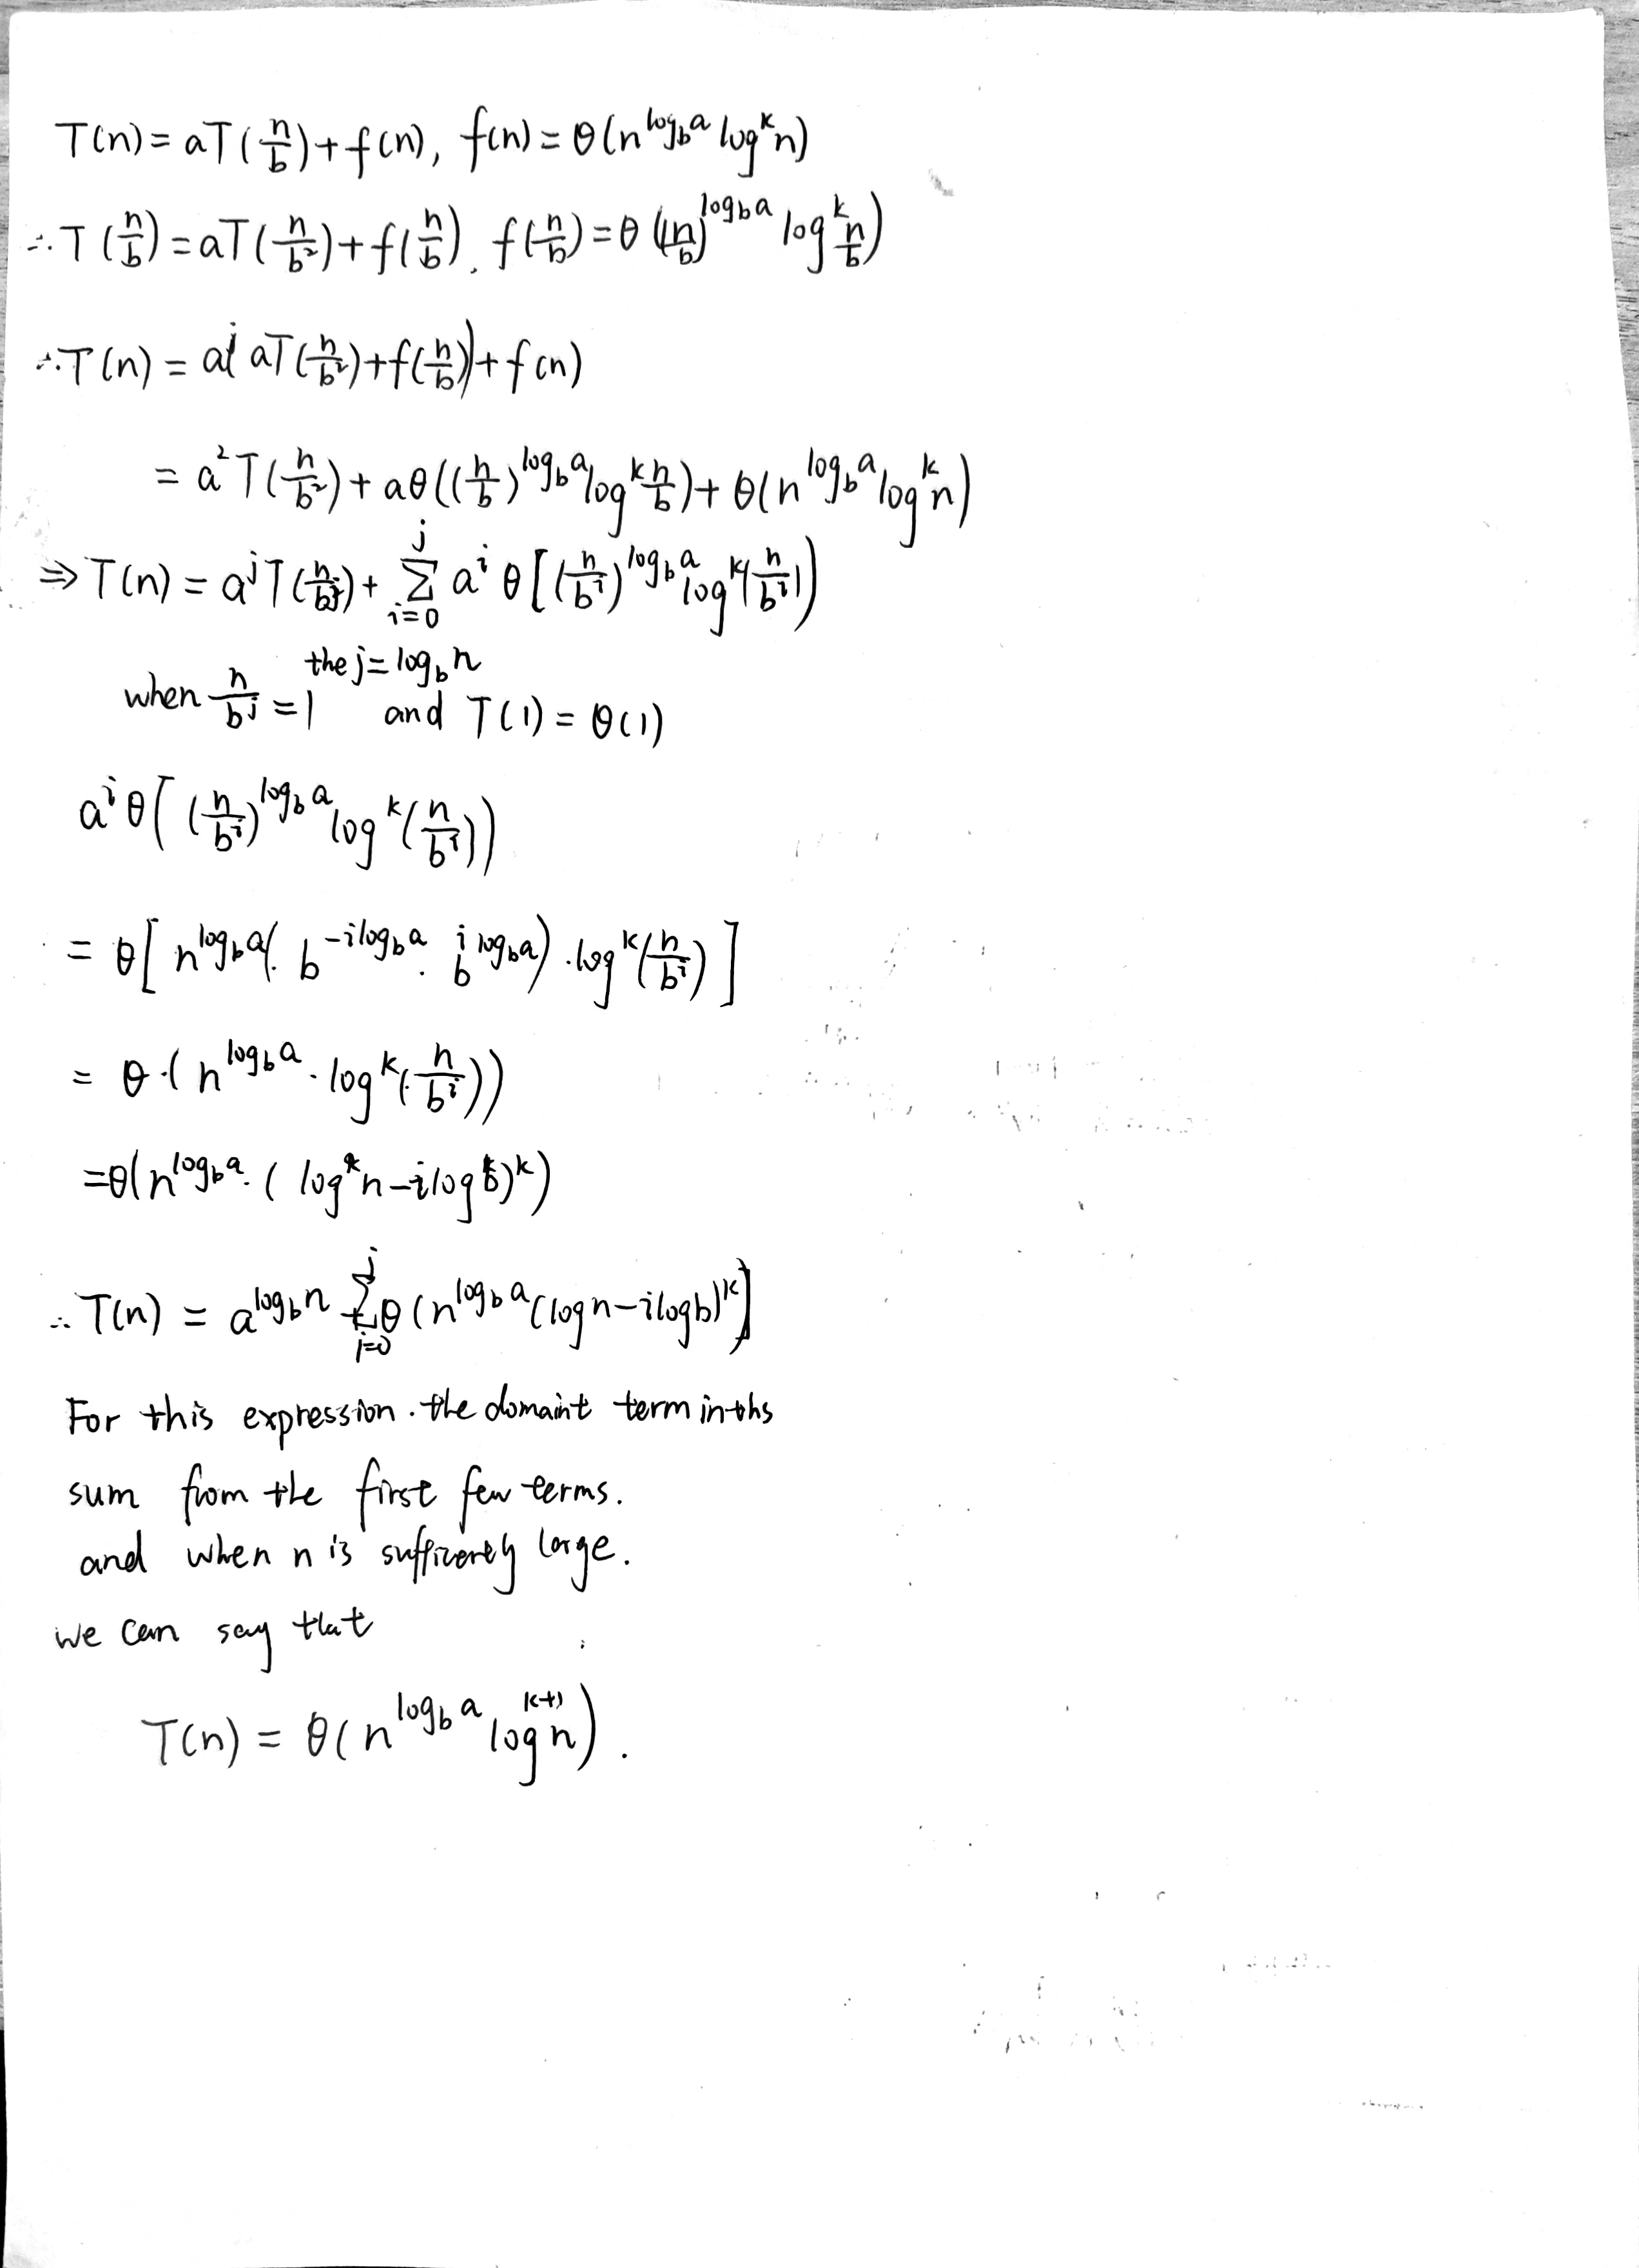 T(n) = aT(n/b) + f(n), f(n) = θ(n^{log_b a} log^k n)
∴ T(n/b) = aT(n/b²) + f(n/b), f(n/b) = θ((n/b)^{log_b a} log^k n/b)
∴ T(n) = a( aT(n/b²) + f(n/b)) + f(n)
= a² T(n/b²) + aθ((n/b)^{log_b a} log^k n/b) + θ(n^{log_b a} log^k n)
⇒ T(n) = a^j T(n/b^j) + Σ_{i=0}^{j} a^i θ[(n/b^i)^{log_b a} log^k(n/b^i))
the j = log_b n
when n/b^j = 1 and T(1) = θ(1)
a^i θ[(n/b^i)^{log_b a} log^k(n/b^i))
= θ[n^{log_b a}(· b^{-i log_b a} · b^{i log_b a}) · log^k(n/b^i)]
= θ·(n^{log_b a} · log^k(n/b^i))
= θ(n^{log_b a} · (log n - i log b)^k)
∴ T(n) = a^{log_b n} + Σ_{i=0}^{j} θ(n^{log_b a} (log n - i log b)^k]
For this expression. the domaint term in ths
sum from the first few terms.
and when n is sufficently large.
we can say that
T(n) = θ(n^{log_b a} log^{k+1} n).